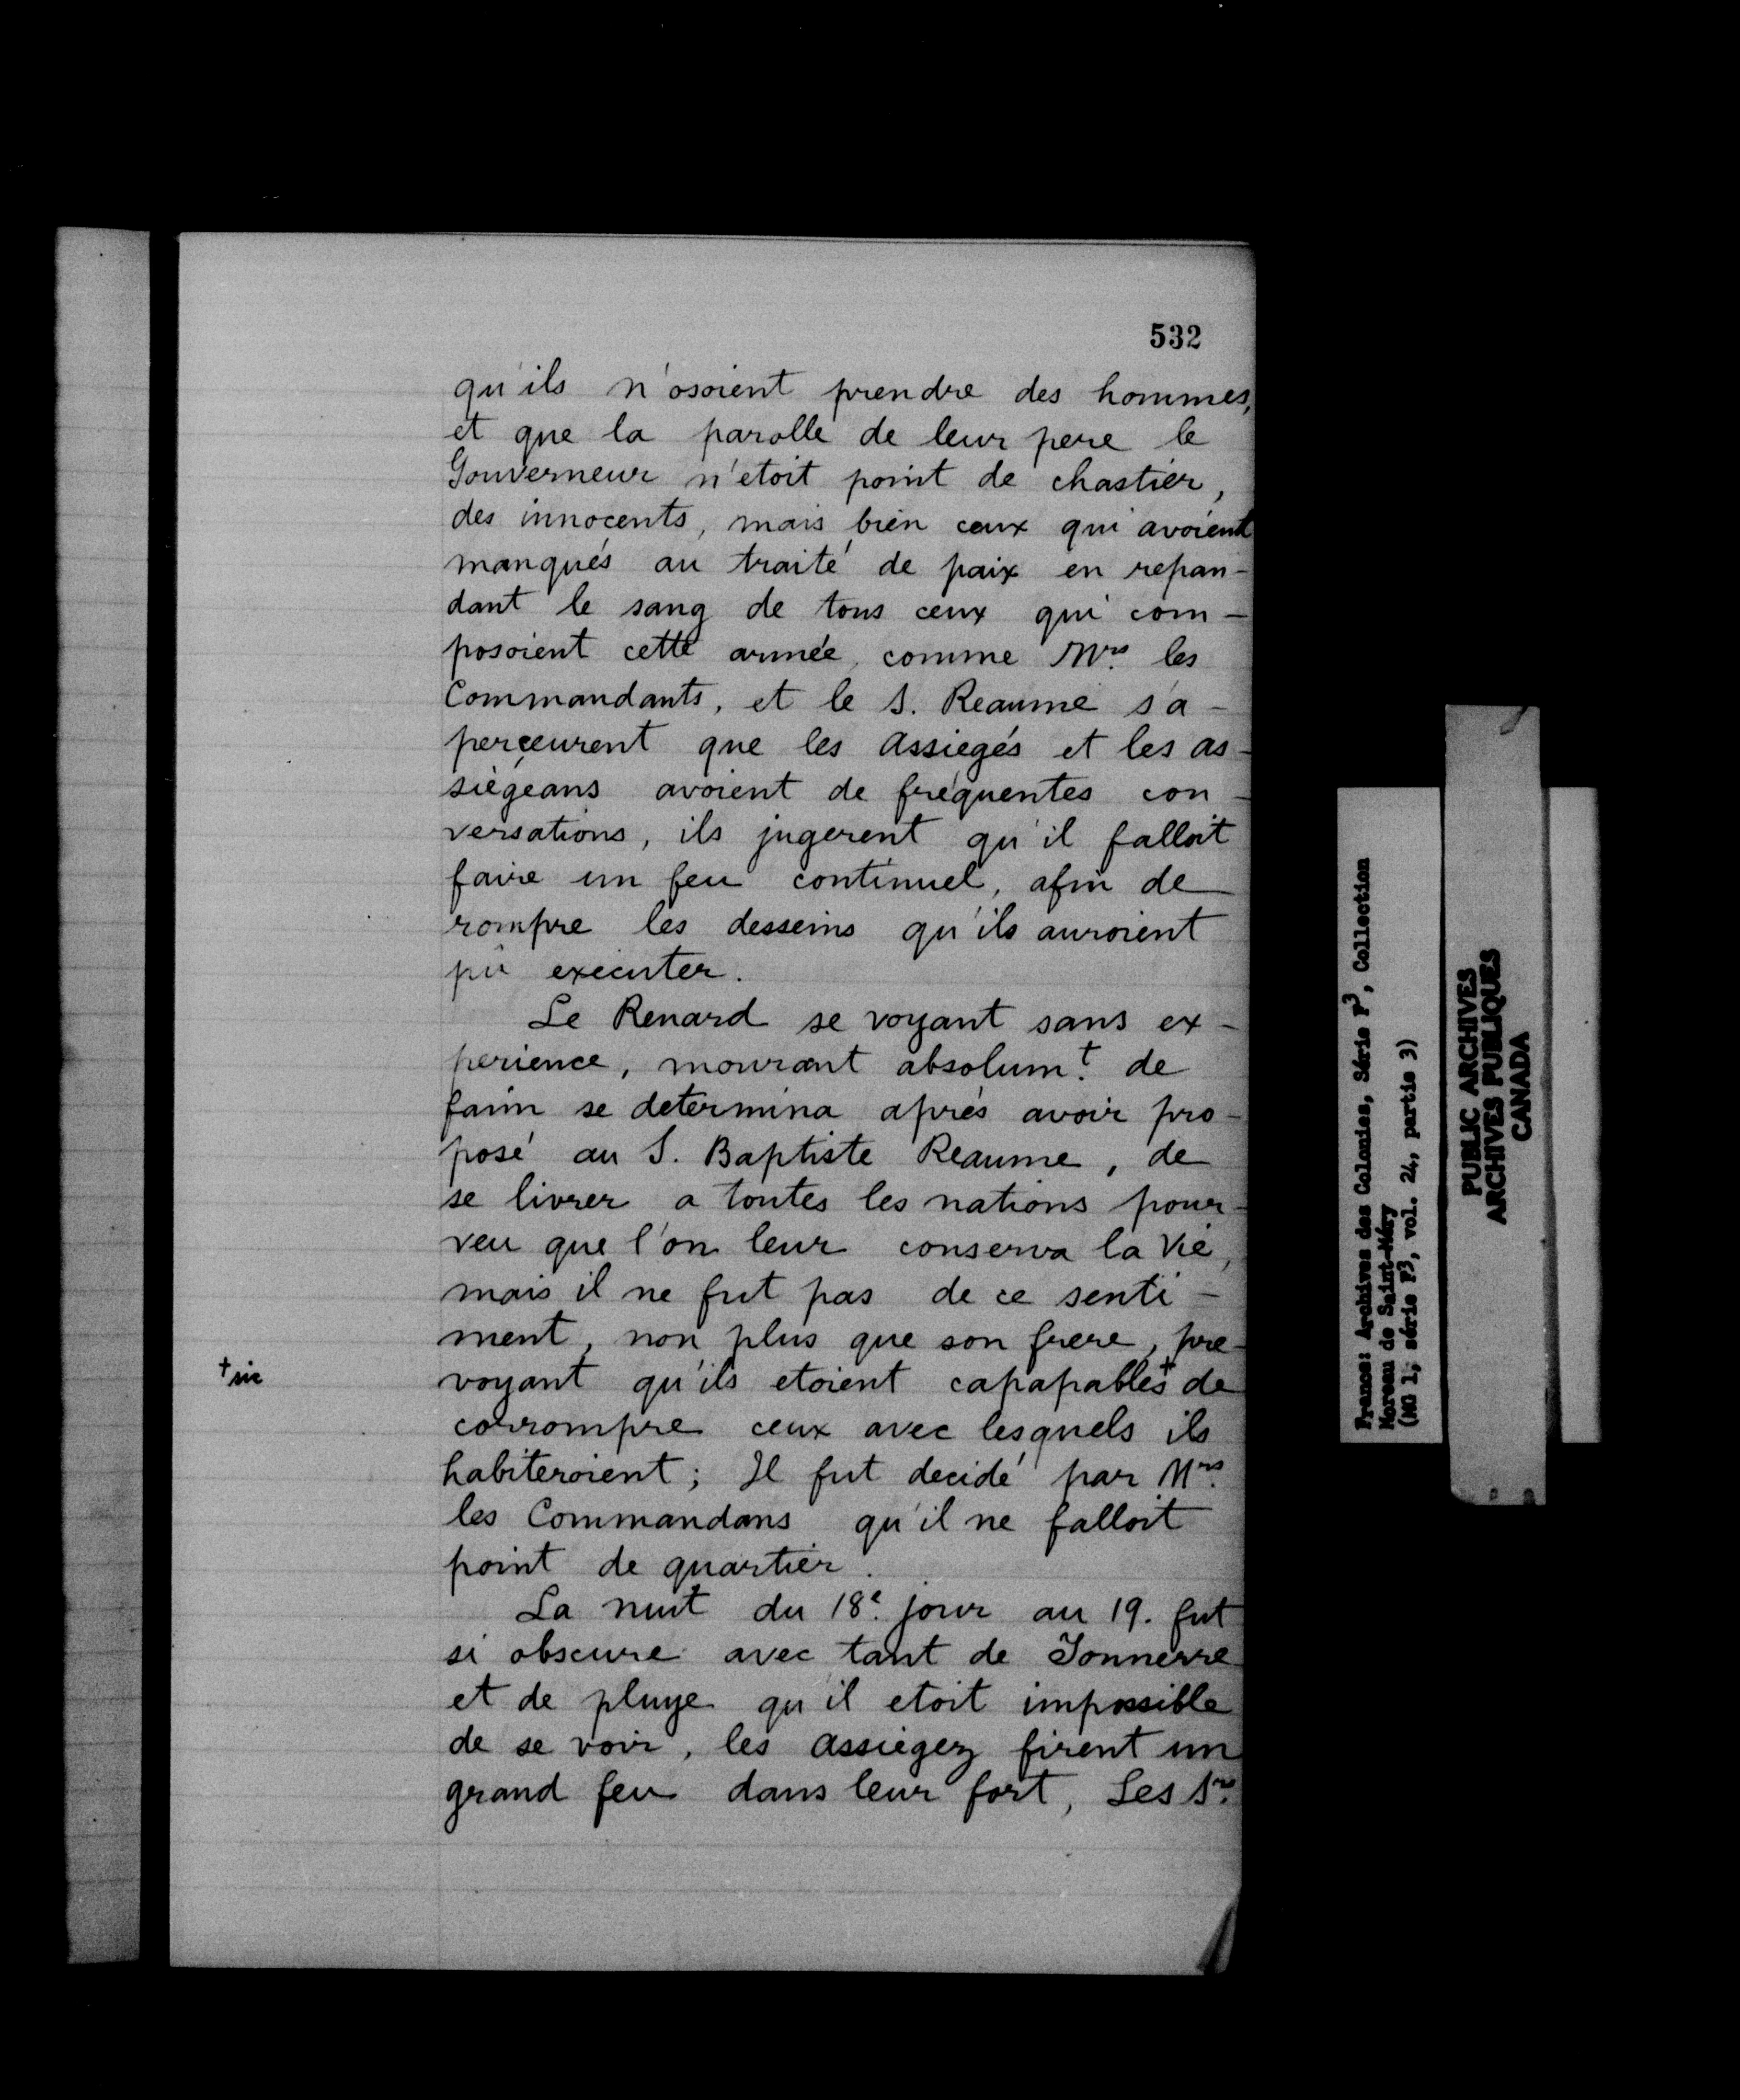 532
qu'ils n'osoient prendre des hommes,
et que la parolle de leur pere le
Gouverneur n'etoit point de chastier,
des innocents, mais bien ceux qui avoient
manqués au traité de paix en repan-
dant le sang de tous ceux qui com-
posoient cette armée, comme Mrs. les
Commandants, et le S. Reaume s'a-
perçeurent que les assiegés et les as-
siégeans avoient de fréquentes con-
versations, ils jugerent qu'il falloit
faire un feu continuel, afin de
rompre les desseins qu'ils auroient
pû executer.
Le Renard se voyant sans ex-
perience, mourant absolum.t de
faim se determina aprés avoir pro-
posé au S. Baptiste Reaume, de
se livrer a toutes les nations pour-
veu que l'on leur conserva la Vie,
mais il ne fut pas de ce senti-
ment, non plus que son frere, pre-
voyant qu'ils etoient capapables+ de
+ sic
corrompre ceux avec lesquels ils
habiteroient; Il fut decidé par Mrs.
les Commandans qu'il ne falloit
point de quartier.
La nuit du 18e. jour au 19. fut
si obscure avec tant de Tonnerre
et de pluye qu'il etoit impossible
de se voir, les assiegez firent un
grand feu dans leur fort, Les Srs.
France: Archives des Colonies, Série F3, Collection
Moreau de Saint-Méry
(MG 1, série F3, vol. 24, partie 3)
PUBLIC ARCHIVES
ARCHIVES PUBLIQUES
CANADA